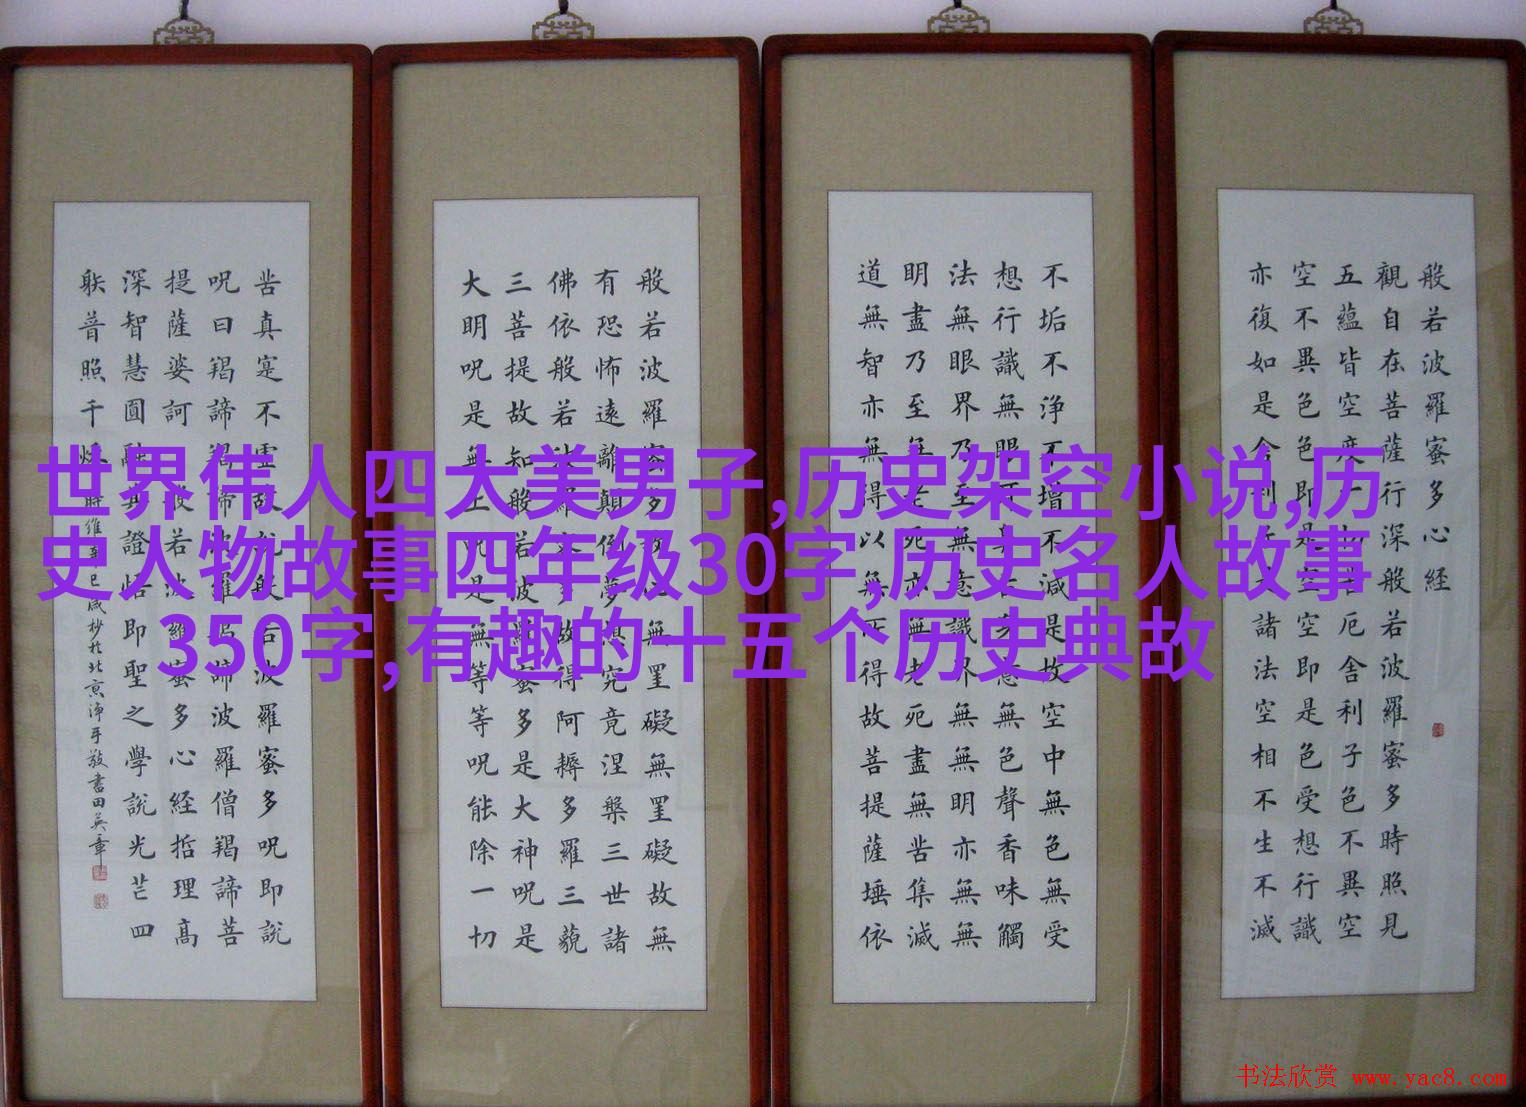 世界伟人四大美男子,历史架空小说,历
史人物故事四年级30字,历史名人故事
350字,有趣的十五个历史典故
般若波羅蜜多心経
觀自在菩薩行深般若波羅蜜多時照見
五蘊皆空度一切苦厄舍利子色不異空
空不異色色即是空空即是色受想行識
亦復如是舍利子是諸法空相不生不滅
不垢不淨不增不減是故空中無色無受
想行識無眼耳鼻舌身意無色聲香味觸
法無眼界乃至無意識界無無明亦無無
明盡乃至無老死亦無老死盡無苦集滅
道無智亦無得以無所得故菩提薩埵依
般若波羅蜜多故心無罣礙無罣礙故無
有恐怖遠離顛倒夢想究竟涅槃三世諸
佛依般若波羅蜜多故得阿耨多羅三藐
三菩提故知般若波羅蜜多是大神呪是
大明呪是無上呪是無等等呪能除一切
苦真寔不虛故説般若波羅蜜多呪即説
呪曰羯諦羯諦波羅羯諦波羅僧羯諦菩
提薩婆訶般若波羅蜜多心経哲理高
深智慧圓融其證悟即聖之學説光芒四
躲普照千
時維辛巳歲杪於北京淨手敬書田英章
书法欣赏 www.yac8.com